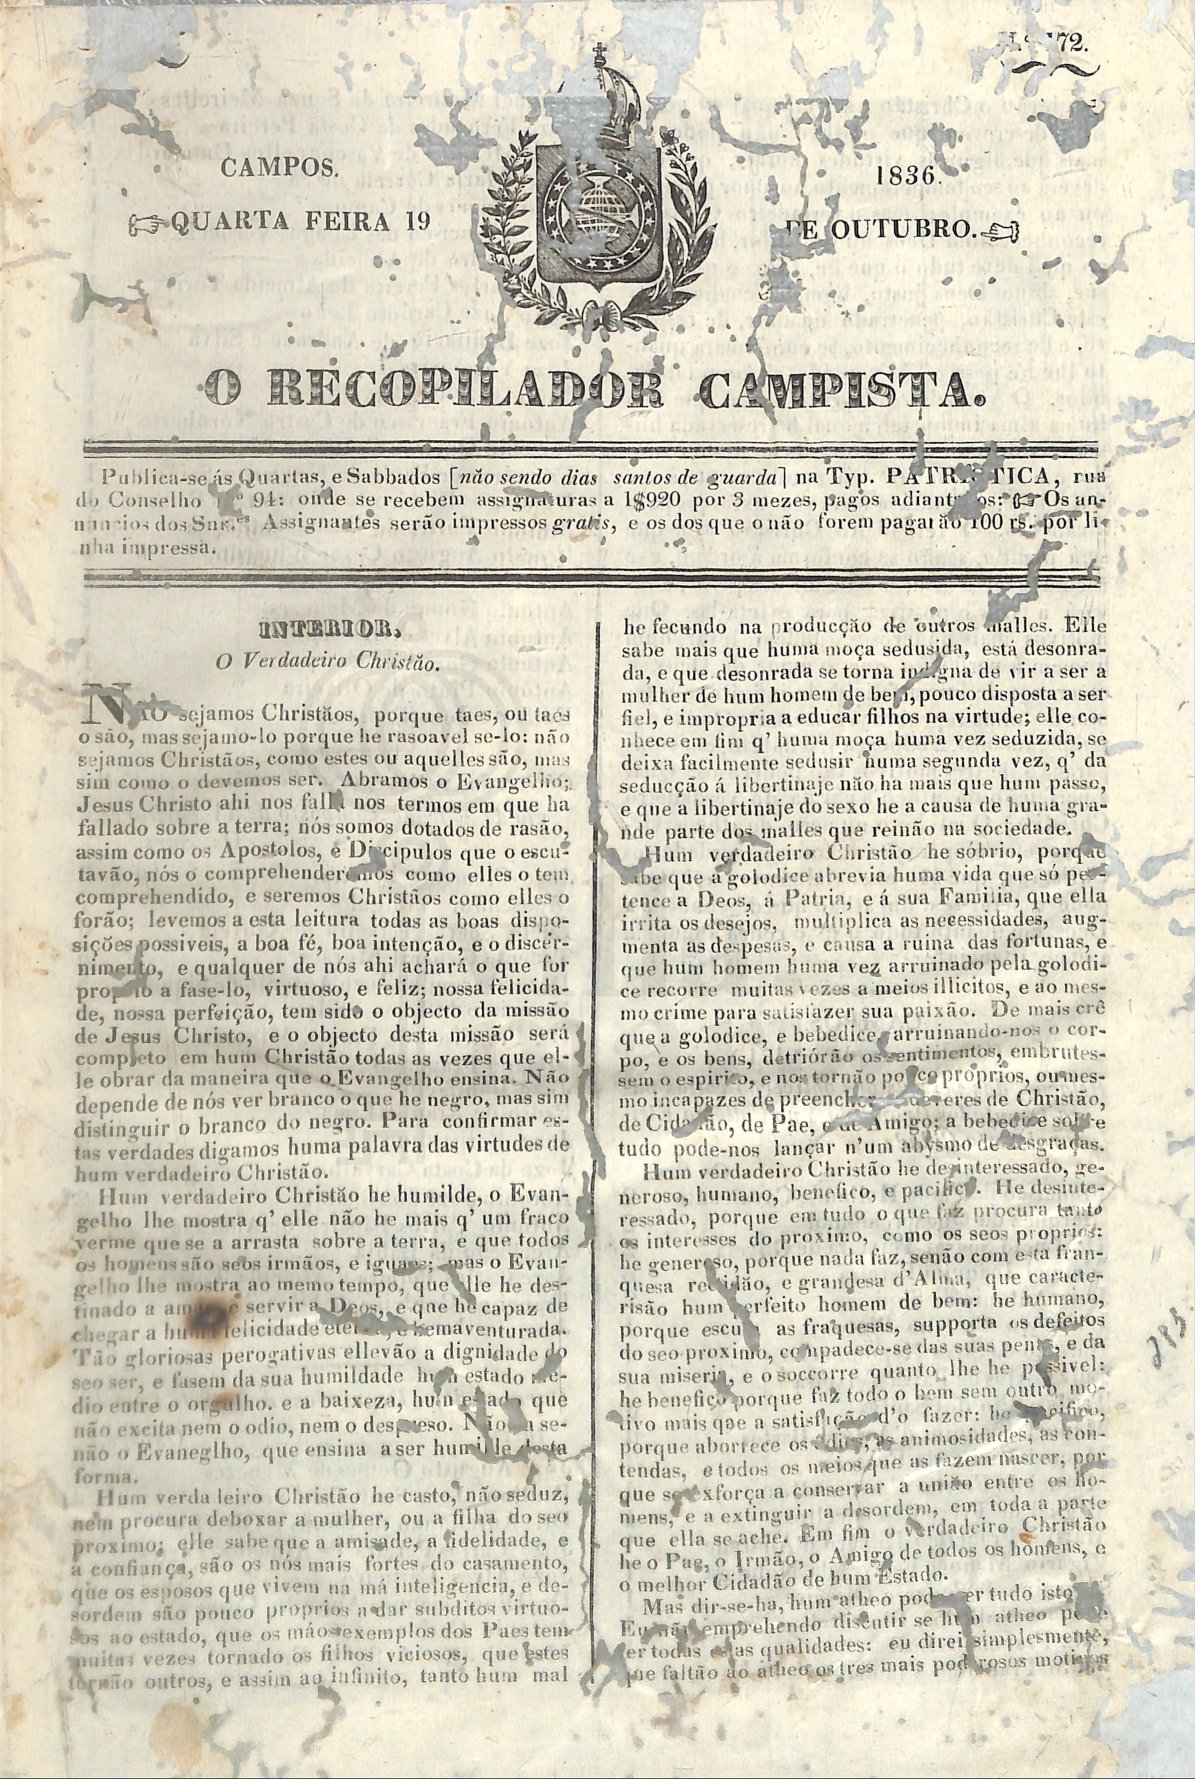 72.
CAMPOS.
1836.
QUARTA FEIRA 19
DE OUTUBRO.
O RECOPILADOR CAMPISTA.
Publica-se ás Quartas, e Sabbados [não sendo dias santos de guarda] na Typ. PATRIOTICA, rua
do Conselho N.º 94: onde se recebem assignaturas a 1$920 por 3 mezes, pagos adiantados: Os an-
nuncios dos Snr.es Assignantes serão impressos gratis, e os dos que o não forem pagarão 100 rs. por li-
nha impressa.
INTERIOR,
O Verdadeiro Christão.
NÃO sejamos Christãos, porque taes, ou taes
o são, mas sejamo-lo porque he rasoavel se-lo: não
sejamos Christãos, como estes ou aquelles são, mas
sim como o devemos ser. Abramos o Evangelho;
Jesus Christo ahi nos falla nos termos em que ha
fallado sobre a terra; nós somos dotados de rasão,
assim como os Apostolos, e Discipulos que o escu-
tavão, nós o comprehenderemos como elles o tem
comprehendido, e seremos Christãos como elles o
forão; levemos a esta leitura todas as boas dispo-
sições possiveis, a boa fé, boa intenção, e o discer-
nimento, e qualquer de nós ahi achará o que for
proprio a fase-lo, virtuoso, e feliz; nossa felicida-
de, nossa perfeição, tem sido o objecto da missão
de Jesus Christo, e o objecto desta missão será
completo em hum Christão todas as vezes que el-
le obrar da maneira que o Evangelho ensina. Não
depende de nós ver branco o que he negro, mas sim
distinguir o branco do negro. Para confirmar es-
tas verdades digamos huma palavra das virtudes de
hum verdadeiro Christão.
Hum verdadeiro Christão he humilde, o Evan-
gelho lhe mostra q' elle não he mais q' um fraco
verme que se a arrasta sobre a terra, e que todos
os homens são seos irmãos, e iguaes; mas o Evan-
gelho lhe mostra ao memo tempo, que elle he des-
tinado a amar e servir a Deos, e que he capaz de
chegar a huma felicidade eterna, e bemaventurada.
Tão gloriosas perogativas ellevão a dignidade do
seo ser, e fasem da sua humildade hum estado me-
dio entre o orgulho. e a baixeza, hum estado que
não excita nem o odio, nem o despreso. Não ha se-
não o Evaneglho, que ensina a ser humilde desta
forma.
Hum verda leiro Christão he casto, não seduz,
nem procura deboxar a mulher, ou a filha do seo
proximo; elle sabe que a amisade, a fidelidade, e
a confiança, são os nós mais fortes do casamento,
que os esposos que vivem na má inteligencia, e de-
sordem são pouco proprios a dar subditos virtuo-
sos ao estado, que os máos exemplos dos Paes tem
muitas vezes tornado os filhos viciosos, que estes
tornão outros, e assim ao infinito, tanto hum mal
he fecundo na producção de outros malles. Elle
sabe mais que huma moça sedusida, está desonra-
da, e que desonrada se torna indigna de vir a ser a
mulher de hum homem de bem, pouco disposta a ser
fiel, e impropria a educar filhos na virtude; elle co-
nhece em fim q' huma moça huma vez seduzida, se
deixa facilmente sedusir huma segunda vez, q' da
seducção á libertinaje não ha mais que hum passo,
e que a libertinaje do sexo he a causa de huma gra-
nde parte dos malles que reinão na sociedade.
Hum verdadeiro Christão he sóbrio, porque
sabe que a golodice abrevia huma vida que só per-
tence a Deos, á Patria, e á sua Familia, que ella
irrita os desejos, multiplica as necessidades, aug-
menta as despesas, e causa a ruina das fortunas, e
que hum homem huma vez arruinado pela golodi-
ce recorre muitas vezes a meios illicitos, e ao mes-
mo crime para satisfazer sua paixão. De mais crê
que a golodice, e bebedice, arruinando-nos o cor-
po, e os bens, detriórão os sentimentos, embrutes-
sem o espirito, e nos tornão pouco próprios, ou mes-
mo incapazes de preencher deveres de Christão,
de Cidadão, de Pae, e de Amigo; a bebedice sobre
tudo pode-nos lançar n'um abysmo de desgraças.
Hum verdadeiro Christão he desinteressado, ge-
neroso, humano, benefico, e pacifico. He desinte-
ressado, porque em tudo o que faz procura tanto
os interesses do proximo, como os seos proprios:
he generoso, porque nada faz, senão com esta fran-
quesa rectidão, e grandesa d'Alma, que caracte-
risão hum perfeito homem de bem: he humano,
porque escusa as fraquesas, supporta os defeitos
do seo proximo, compadece-se das suas penas, e da
sua miseria, e o soccorre quanto lhe he possivel:
he benefico porque faz todo o bem sem outro mo-
tivo mais que a satisfação d'o fazer: he pacifico,
porque aborrece os odios, as animosidades, as con-
tendas, e todos os meios que as fazem nascer, por
que se exforça a conservar a união entre os ho-
mens, e a extinguir a desordem, em toda a parte
que ella se ache. Em fim o verdadeiro Christão
he o Pae, o Irmão, o Amigo de todos os homens, e
o melhor Cidadão de hum Estado.
Mas dir-se-ha, hum atheo pode ser tudo isto
Eu não emprehendo discutir se hum atheo pode
ter todas estas qualidades: eu direi simplesmente,
que faltão ao atheo os tres mais poderosos motivos